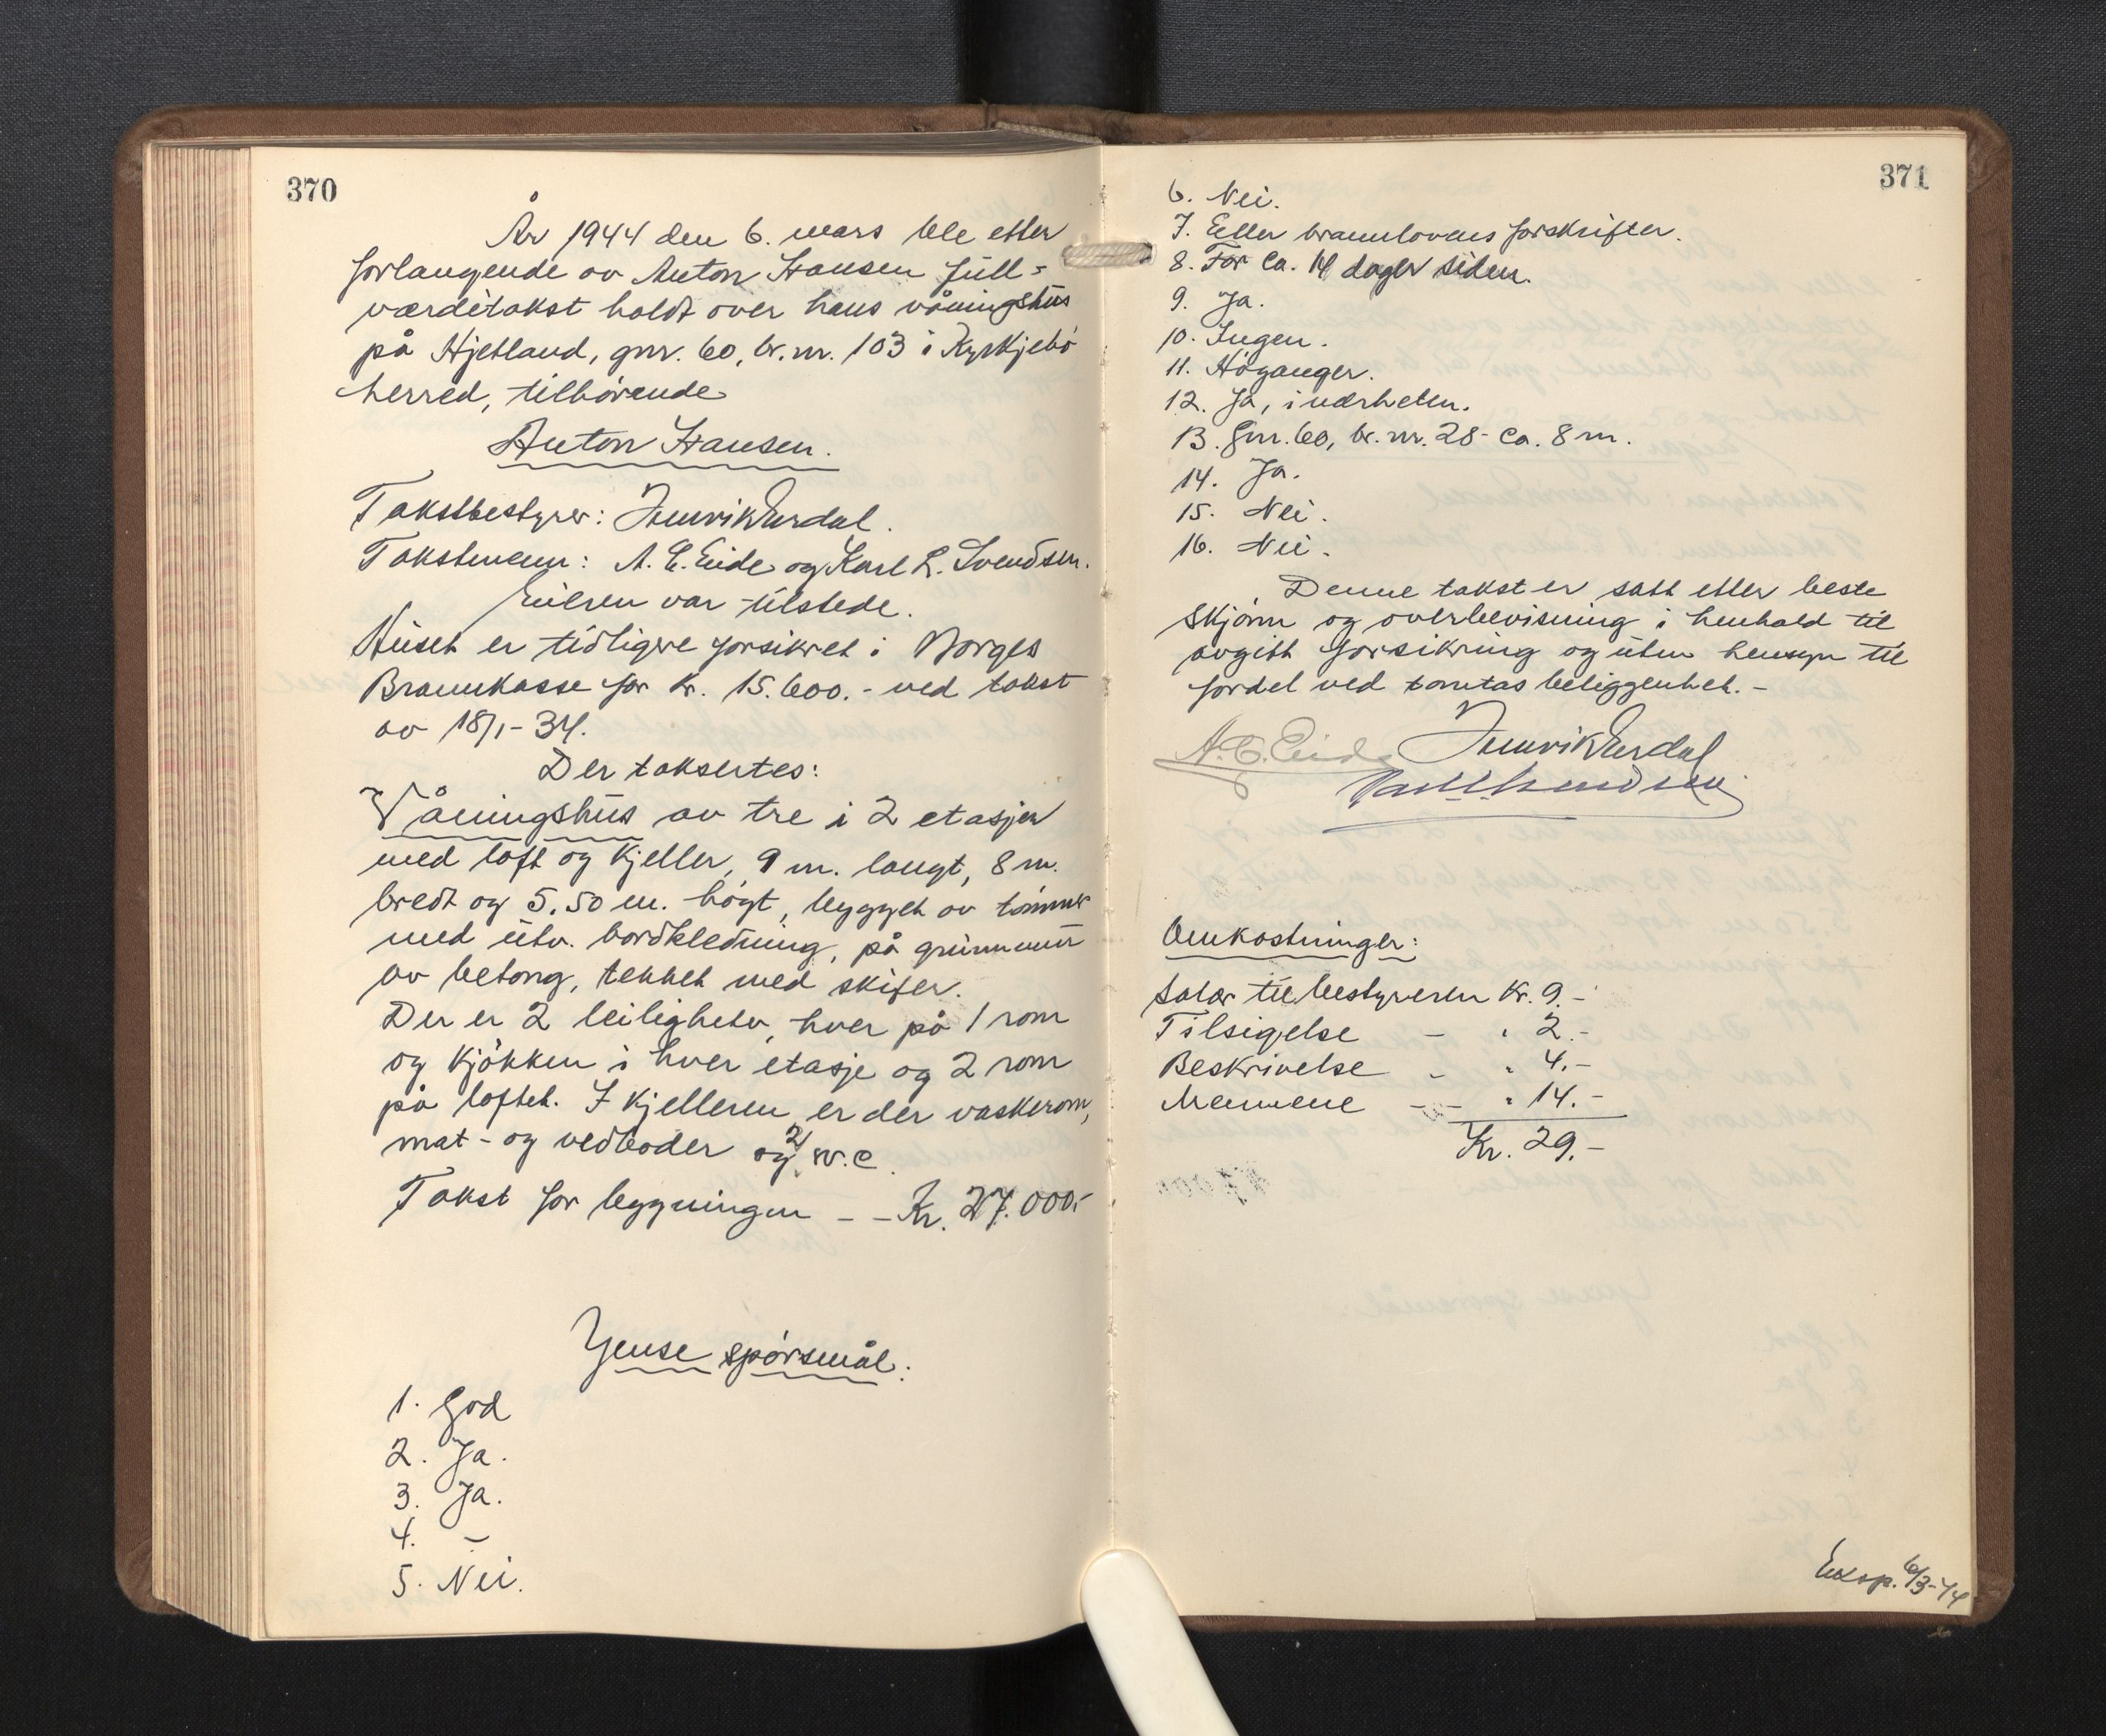 370
År 1944 den 6. mars ble etter
forlangende av Anton Hansen full-
værditakst holdt over hans våningshus
på Hjetland, gnr. 60, br. nr. 103 i Kyrkjebö
herred, tilhörende
Anton Hansen.
Takstbestyrer: Henrik Erdal.
Takstmenn: A. E. Eide og Karl L. Svendsen.
Eieren var tilstede.
Huset er tidligere forsikret i Norges
Brannkasse for kr. 15.600.- ved takst
av 18/1-34.
Der taksertes:
Våningshus av tre i 2 etasjer
med loft og kjeller, 9 m. langt, 8 m.
bredt og 5.50 m. högt, bygget av tömmer
med utv. bordkledning, på grunnmur
av betong, tekket med skifer.
Der er 2 leiligheter, hver på 1 rom
og kjökken i hver etasje og 2 rom
på loftet. I kjelleren er der vaskerom,
mat- og vedboder og 2 w.c.
Takst for bygningen - - Kr. 27.000.-
Ymse spörsmål:
1. God
2. Ja.
3. Ja.
4. -
5. Nei.
371
6. Nei.
7. Etter brannlovens forskrifter.
8. For ca. 14 dager siden.
9. Ja.
10. Ingen.
11. Höyanger.
12. Ja, i nærheten.
13. gnr. 60, br. nr. 28 - ca. 8 m.
14. Ja.
15. Nei.
16. Nei.
Denne takst er satt etter beste
skjönn og overbevisning i henhold til
avgitt forsikring og uten hensyn til
fordel ved tomtas beliggenhet. -
A. E. Eide Henrik Erdal
Karl L. Svendsen
Omkostninger:
Salær til bestyreren Kr. 9.-
Tilsigelse - " 2.-
Beskrivelse - " 4.-
Mennene - - " 14.-
Kr. 29.-
Eksp. 6/3-44